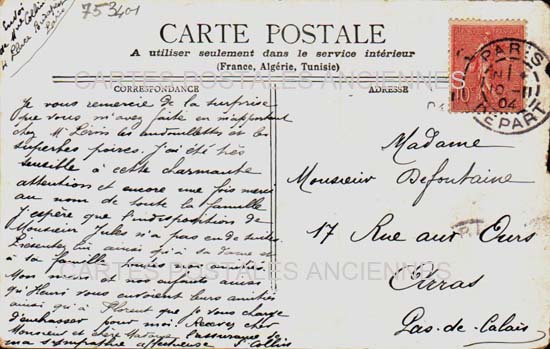 Envoi
de Mr Collin
4 Place
Paris
753401
CARTE POSTALE
A utiliser seulement dans le service intérieur
(France, Algérie, Tunisie)
CORRESPONDANCE
ADRESSE
CARTES POSTALES ANCIENNES
Je vous remercie de la surprise
que vous m'avez faite en m'apportant
chez Mr les andouillettes et les
superbes poires. J'ai été très
sensible à cette charmante
attention et encore une fois merci
au nom de toute la famille
J'espère que l'indisposition de
Monsieur Jules n'a pas eu de suites.
Présentez lui ainsi qu'à sa dame et
à sa famille toutes nos amitiés.
Mon et nos enfants ainsi
qu'Henri vous envoient leurs amitiés
ainsi qu'à Florent que je vous charge
d'embrasser pour moi. Recevez cher
Monsieur et chère Madame l'assurance de
ma sympathie affectueuse. Collin
PARIS
DEPART
04
10
Madame
Monsieur Defontaine
17 Rue aux Ours
Arras
Pas-de-Calais
CARTES POSTALES ANCIENNES